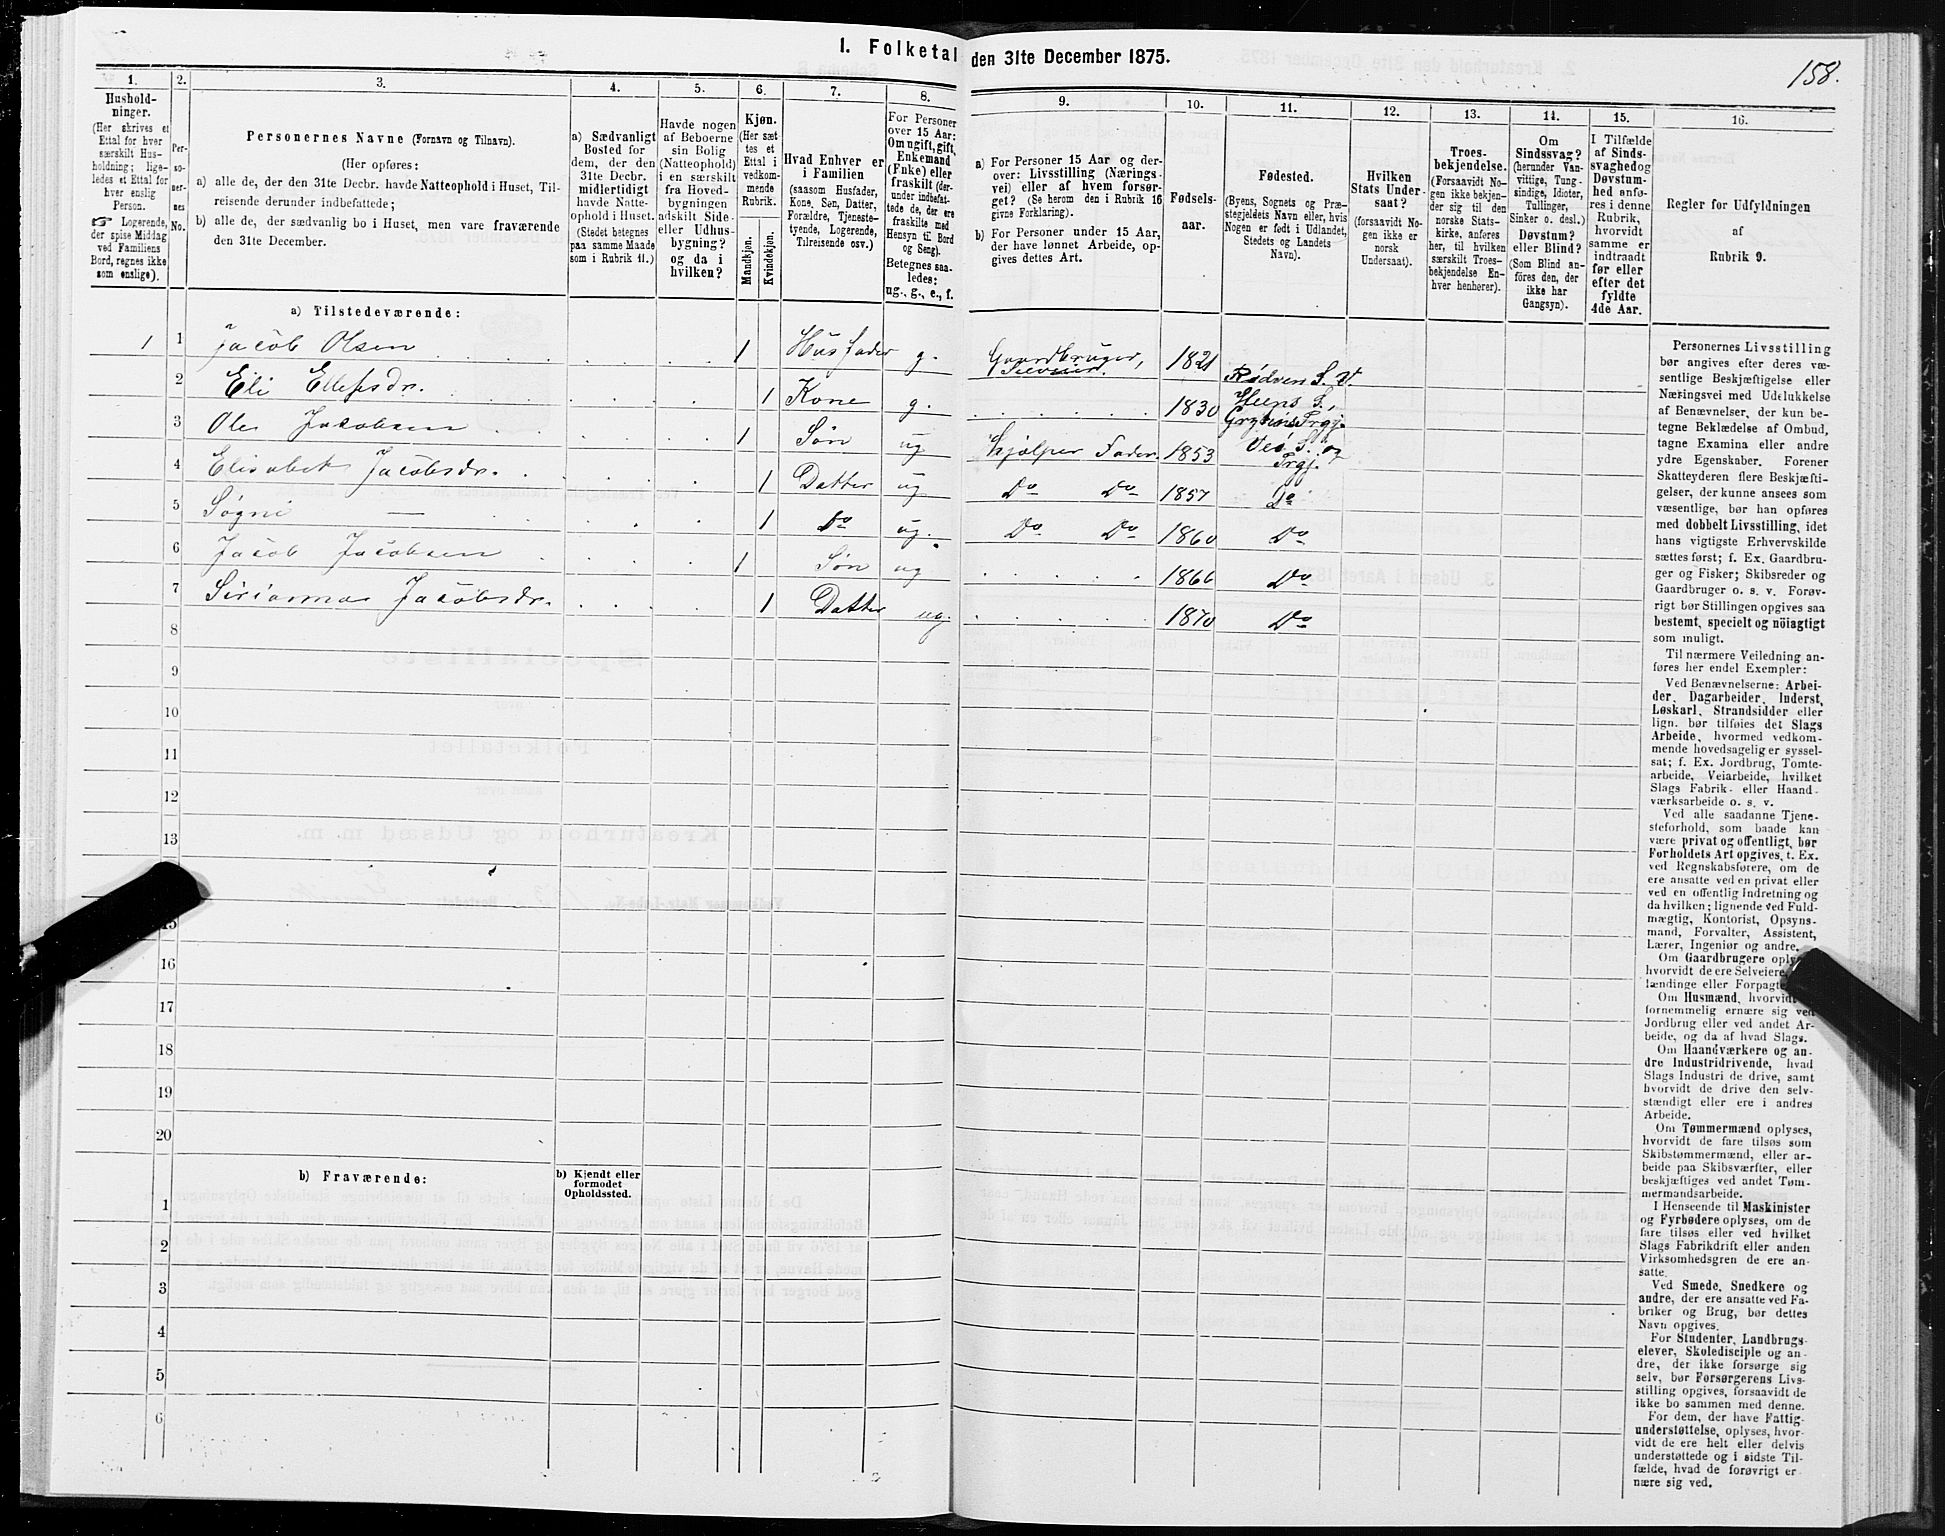 1. Folketal den 31te December 1875.
158.
1.
Hushold-
ninger.
(Her skrives et
Ettal for hver
særskilt Hus-
holdning; lige-
ledes et Ettal for
hver enslig
Person.
☞ Logerende,
der spise Middag
ved Familiens
Bord, regnes ikke
som enslige).
2.
Per-
so-
ner-
nes
No.
3.
Personernes Navne (Fornavn og Tilnavn).
(Her opføres:
a) alle de, der den 31te Decbr. havde Natteophold i Huset, Til-
reisende derunder indbefattede;
b) alle de, der sædvanlig bo i Huset, men vare fraværende
den 31te December.
4.
a) Sædvanligt
Bosted for
dem, der den
31te Decbr.
midlertidigt
havde Natte-
ophold i Huset.
(Stedet betegnes
paa samme Maade
som i Rubrik 11.)
5.
Havde nogen
af Beboerne
sin Bolig
(Natteophold)
i en særskilt
fra Hoved-
bygningen
adskilt Side-
eller Udhus-
bygning?
og da i
hvilken?
6.
Kjøn.
(Her sæt
tes et
Ettal i
vedkom-
mende
Rubrik.
Mandkjøn.
Kvindekjøn.
7.
Hvad Enhver er
i Familien
(saasom Husfader,
Kone, Søn, Datter,
Forældre, Tjeneste-
tyende, Logerende,
Tilreisende osv.)
8.
For Personer
over 15 Aar:
Om ugift, gift,
Enkemand
(Enke) eller
fraskilt (der-
under indbefat-
tede de, der ere
fraskilte med
Hensyn til Bord
og Seng).
Betegnes saa-
ledes:
ug., g., e., f.
9.
a) For Personer 15 Aar og der-
over: Livsstilling (Nærings-
vei) eller af hvem forsør-
get? (Se herom den i Rubrik 16
givne Forklaring).
b) For Personer under 15 Aar,
der have lønnet Arbeide, op-
gives dettes Art.
10.
Fødsels-
aar.
11.
Fødested.
(Byens, Sognets og Præ-
stegjeldets Navn eller, hvis
Nogen er født i Udlandet,
Stedets og Landets
Navn).
12.
Hvilken
Stats Under-
saat?
(forsaavidt No-
gen ikke er
norsk
Undersaat).
13.
Troes-
bekjendelse.
(Forsaavidt No-
gen ikke bekjen-
der sig til den
norske Stats-
kirke, anføres
her, til hvilken
særskilt Troes-
bekjendelse En-
hver henhører).
14.
Om
Sindssvag?
(herunder Van-
vittige, Tung-
sindige, Idioter,
Tullinger,
Sinker o. desl.)
Døvstum?
eller Blind?
(Som Blind an-
føres den, der
ikke har
Gangsyn).
15.
I Tilfælde
af Sinds-
svaghed og
Døvstum-
hed anfø-
res i denne
Rubrik,
hvorvidt
samme er
indtraadt
før eller
efter det
fyldte
4de Aar.
16.
Regler for Udfyldningen
af
Rubrik 9.
a) Tilstedeværende:
1 1 Jacob Olsen 1 Husfader g. Gaardbruger, Selveier. 1821 Rødven S. V.
2 Eli Ellefsdr. 1 Kone g. 1830 Heens S., Gryttens Prgj.
3 Ole Jacobsen 1 Søn ug Hjælper Fader 1853 Veø S. og Prgj.
4 Elisabet Jacobsdr. 1 Datter ug Do Do 1857 Do
5 Søgni — 1 Do ug. Do Do 1860 Do
6 Jacob Jacobsen 1 Søn ug 1866 Do
7 Jacobsdr. 1 Datter ug. 1870 Do
8
9
10
11
12
13
15
16
17
18
19
20
b) Fraværende:
b) Kjendt eller
formodet
Opholdssted.
1
2
3
4
5
6
Personernes Livsstilling
bør angives efter deres væ-
sentlige Beskjæftigelse eller
Næringsvei med Udelukkelse
af Benævnelser, der kun be-
tegne Beklædelse af Ombud,
tagne Examina eller andre
ydre Egenskaber. Forener
Skatteyderen flere Beskjæfti-
gelser, der kunne ansees som
væsentlige, bør han opføres
med dobbelt Livsstilling, idet
hans vigtigste Erhvervskilde
sættes først; f. Ex. Gaardbru-
ger og Fisker; Skibsreder og
Gaardbruger o. s. v. Forøv-
rigt bør Stillingen opgives saa
bestemt, specielt og nöiagtigt
som muligt.
Til nærmere Veiledning an-
føres her endel Exempler:
Ved Benævnelserne: Arbei-
der, Dagarbeider, Inderst,
Løskarl, Strandsidder eller
lign. bør tilføies det Slags
Arbeide, hvormed vedkom-
mende hovedsagelig er syssel-
sat; f. Ex. Jordbrug, Tomte-
arbeide, Veiarbeide, hvilket
Slags Fabrik- eller Haand-
værksarbeide o. s. v.
Ved alle saadanne Tjene-
steforhold, som baade kan
være privat og offentligt, bør
Forholdets Art opgives, t. Ex.
ved Regnskabsførere, om de
ere ansatte ved en privat eller
ved en offentlig Indretning og
da hvilken; lignende ved Fuld-
mægtig, Kontorist, Opsyns-
mand, Forvalter, Assistent,
Lærer, Ingeniør og andre.
Om Gaardbrugere oply-
hvorvidt de ere Selveiere,
lændinge eller Forpagte
Om Husmænd, hvorvidt
fornemmelig ernære sig ved
Jordbrug eller ved andet Ar-
beide, og da af hvad Slags.
Om Haandværkere og an-
dre Industridrivende, hvad
Slags Industri de drive, samt
hvorvidt de drive den selv-
stændigt eller ere i andres
Arbeide.
Om Tømmermænd oplyses,
hvorvidt de fare tilsøs som
Skibstømmermænd, eller ar-
beide paa Skibsværfter, eller
beskjæftiges ved andet Tøm-
mermandsarbeide.
I Henseende til Maskinister
og Fyrbødere oplyses, om de
fare tilsøs eller ved hvilket
Slags Fabrikdrift eller anden
Virksomhedsgren de ere an-
satte.
Ved Smede, Snedkere og
andre, der ere ansatte ved Fa-
briker og Brug, bør dettes
Navn opgives.
For Studenter, Landbrugs-
elever, Skoledisciple og an-
dre, der ikke forsørge sig
selv, bør Forsørgerens Livs-
stilling opgives, forsaavidt de
ikke bo sammen med denne.
For dem, der have Fattig-
understøttelse, oplyses, hvor-
vidt de ere helt eller delvis
understøttede og i sidste Til-
fælde, hvad de forøvrigt er-
nære sig ved.